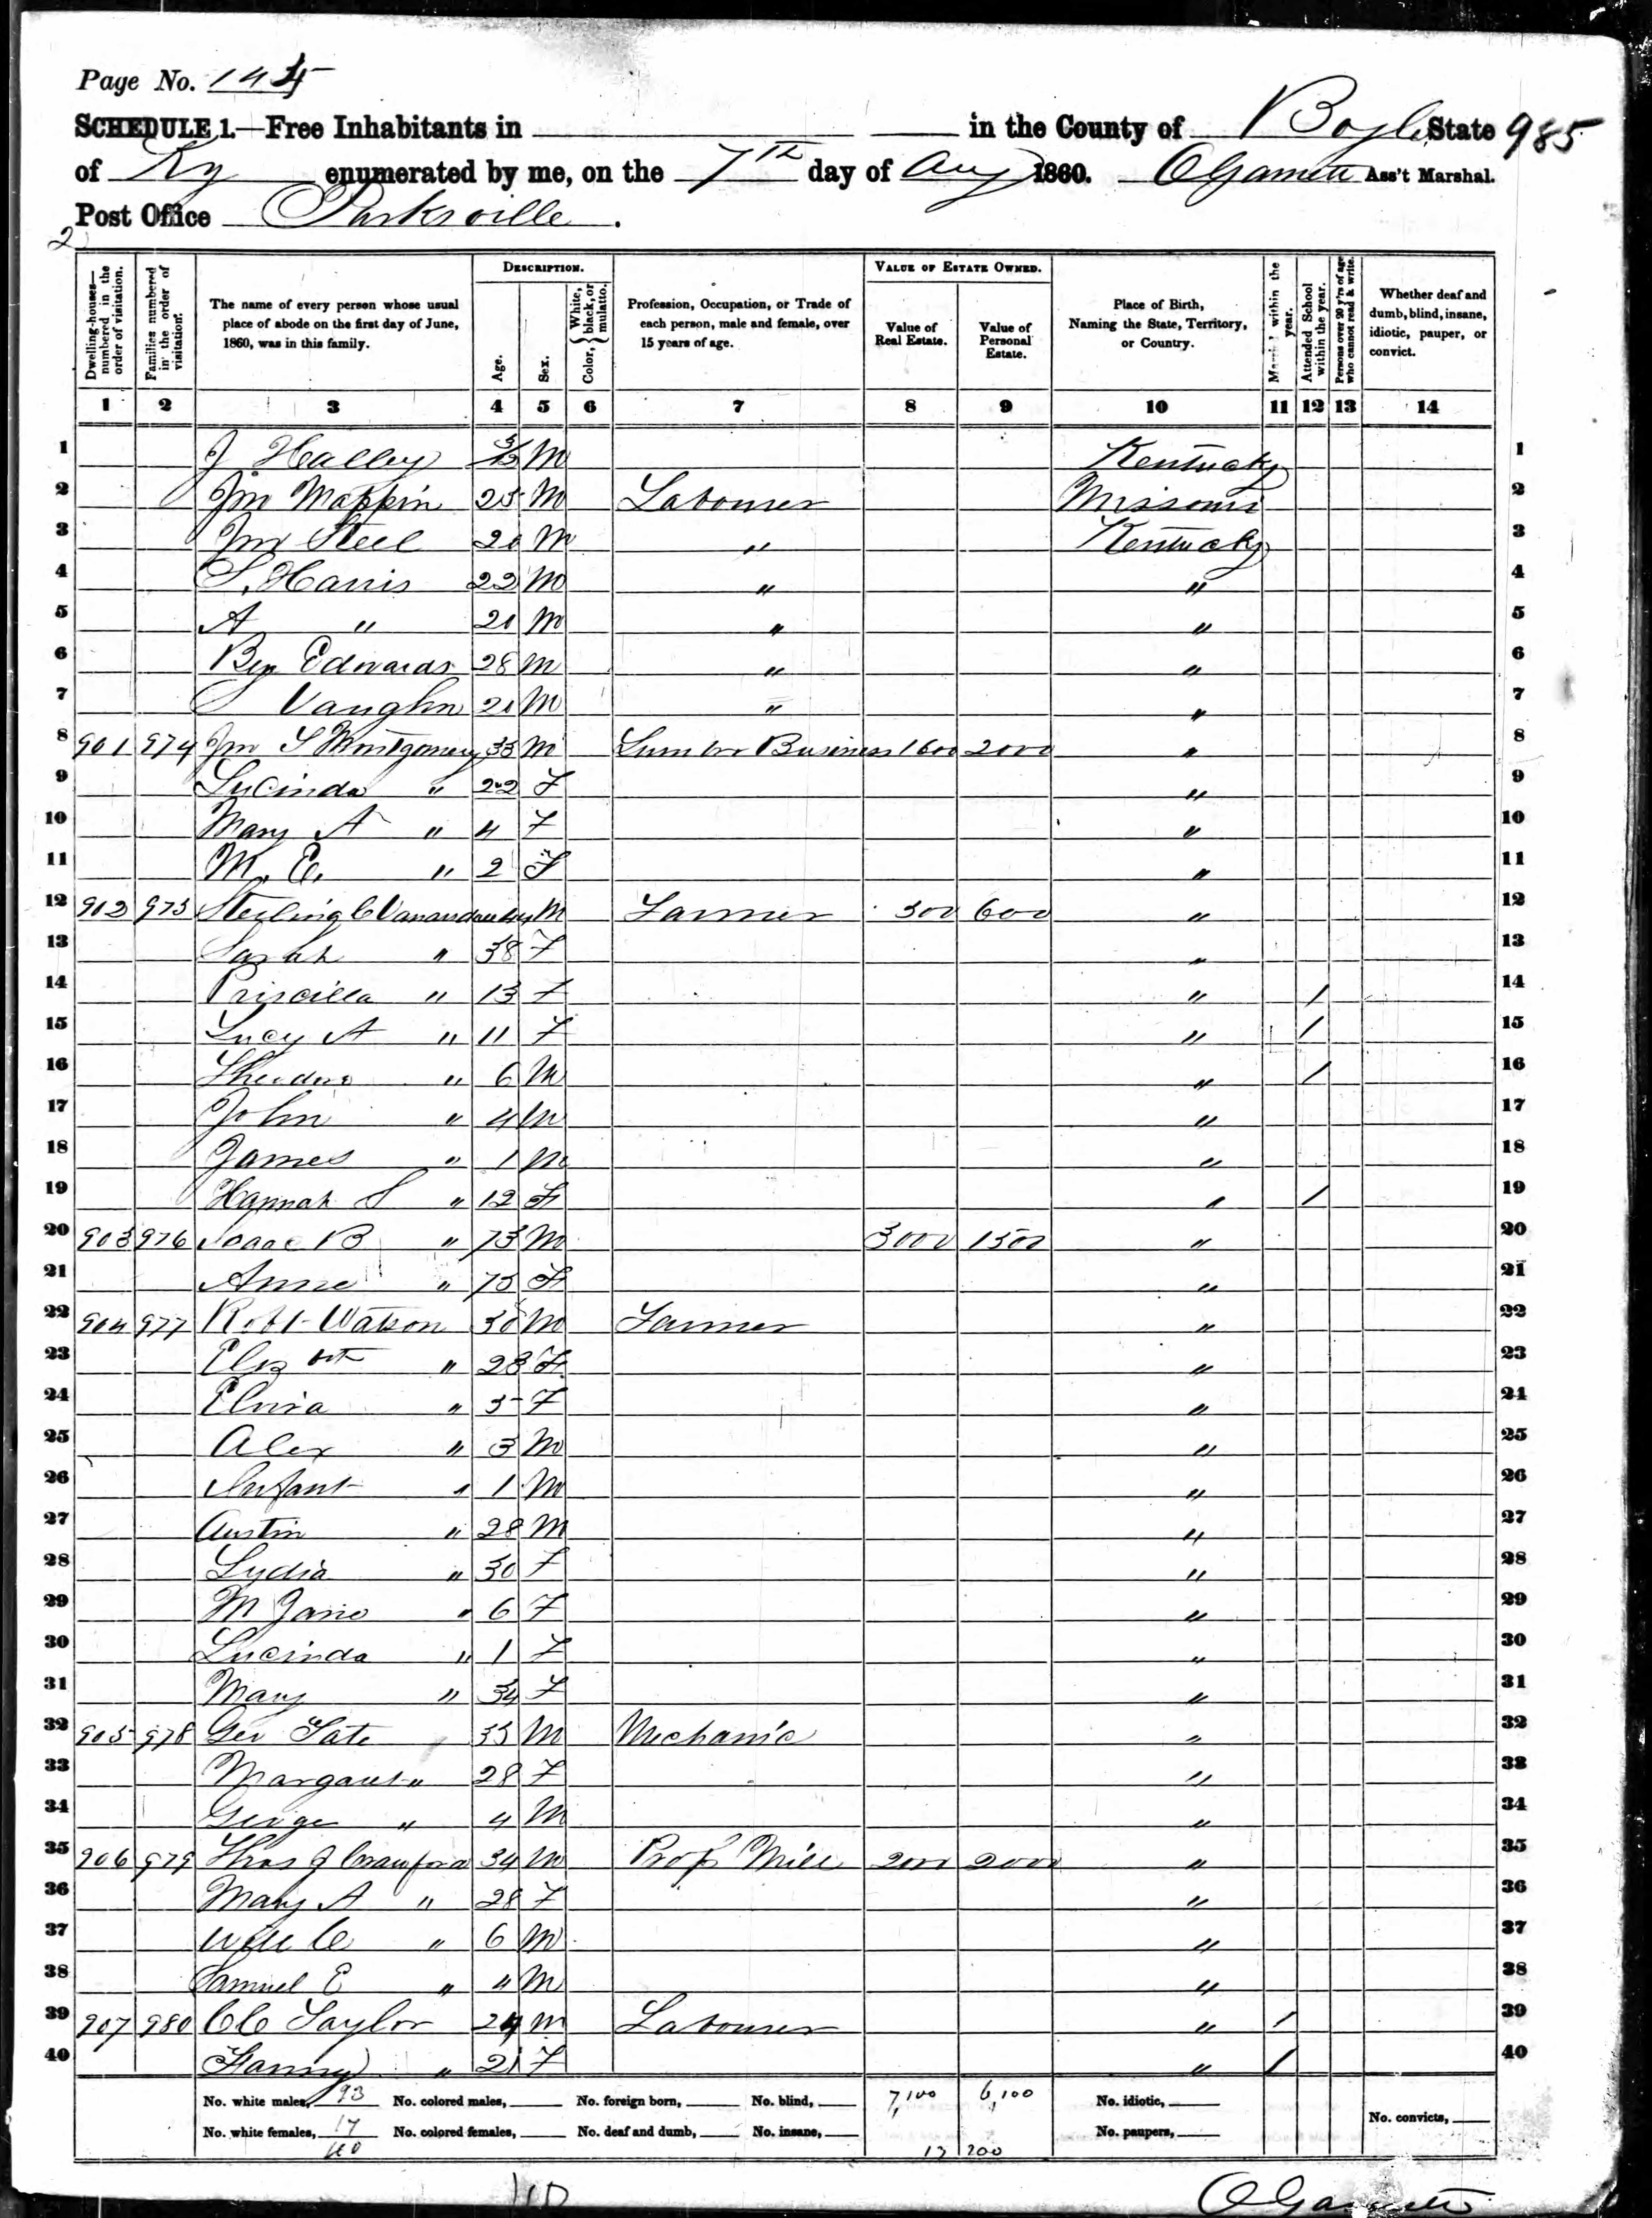 Page No. 145
SCHEDULE 1.—Free Inhabitants in in the County of Boyle State 985
of Ky enumerated by me, on the 7th day of Aug 1860. O Garnett Ass't Marshal.
Post Office Parksville.
2
Dwelling-houses—numbered in the order of visitation.
Families numbered in the order of visitation.
The name of every person whose usual place of abode on the first day of June, 1860, was in this family.
DESCRIPTION.
Age.
Sex.
Color, { White, black, or mulatto.
Profession, Occupation, or Trade of each person, male and female, over 15 years of age.
VALUE OF ESTATE OWNED.
Value of Real Estate.
Value of Personal Estate.
Place of Birth, Naming the State, Territory, or Country.
within the year.
Attended School within the year.
Persons over 20 y'rs of age who cannot read & write.
Whether deaf and dumb, blind, insane, idiotic, pauper, or convict.
1 2 3 4 5 6 7 8 9 10 11 12 13 14
1 J Halley M Kentucky 1
2 Jno Mappin 25 M Labourer Missouri 2
3 Jno Steel 20 M " Kentucky 3
4 S. Harris 22 M " " 4
5 A " 20 M " " 5
6 Ben Edwards 28 M " " 6
7 Vaughn 20 M " " 7
8 901 974 Jno S Montgomery 33 M Lumber Business 1600 2000 " 8
9 Lucinda " 22 F " 9
10 Mary A " 4 F " 10
11 M. E. " 2 F " 11
12 902 975 Sterling C M Farmer 500 600 " 12
13 Sarah " 38 F " 13
14 Priscilla " 13 F " / 14
15 Lucy A " 11 F " / 15
16 Theodore " 6 M " / 16
17 John " 4 M " 17
18 James " 1 M " 18
19 Hannah S " 12 F " / 19
20 903 976 Isaac B " 73 M 3000 1500 " 20
21 Anne " 75 F " 21
22 904 977 Robt Watson 38 M Farmer " 22
23 Eliz bth " 28 F " 23
24 Elvira " 5 F " 24
25 Alex " 3 M " 25
26 Infant " 1 M " 26
27 Austin " 28 M " 27
28 Lydia " 30 F " 28
29 M Jane " 6 F " 29
30 Lucinda " 1 F " 30
31 Mary " 34 F " 31
32 905 978 Geo Tate 35 M Mechanic " 32
33 Margaret " 28 F " 33
34 George " 4 M " 34
35 906 979 Thos J Crawford 34 M Prop Mill 2000 2000 " 35
36 Mary A " 28 F " 36
37 Will C " 6 M " 37
38 Samuel E " 4 M " 38
39 907 980 C C Taylor 24 M Labourer " / 39
40 Fanny " 21 F " / 40
No. white males, 23 No. colored males, No. foreign born, No. blind, 7,100 6,100 No. idiotic,
No. white females, 17 No. colored females, No. deaf and dumb, No. insane, No. paupers, No. convicts,
40 13 200
40 O Garnett